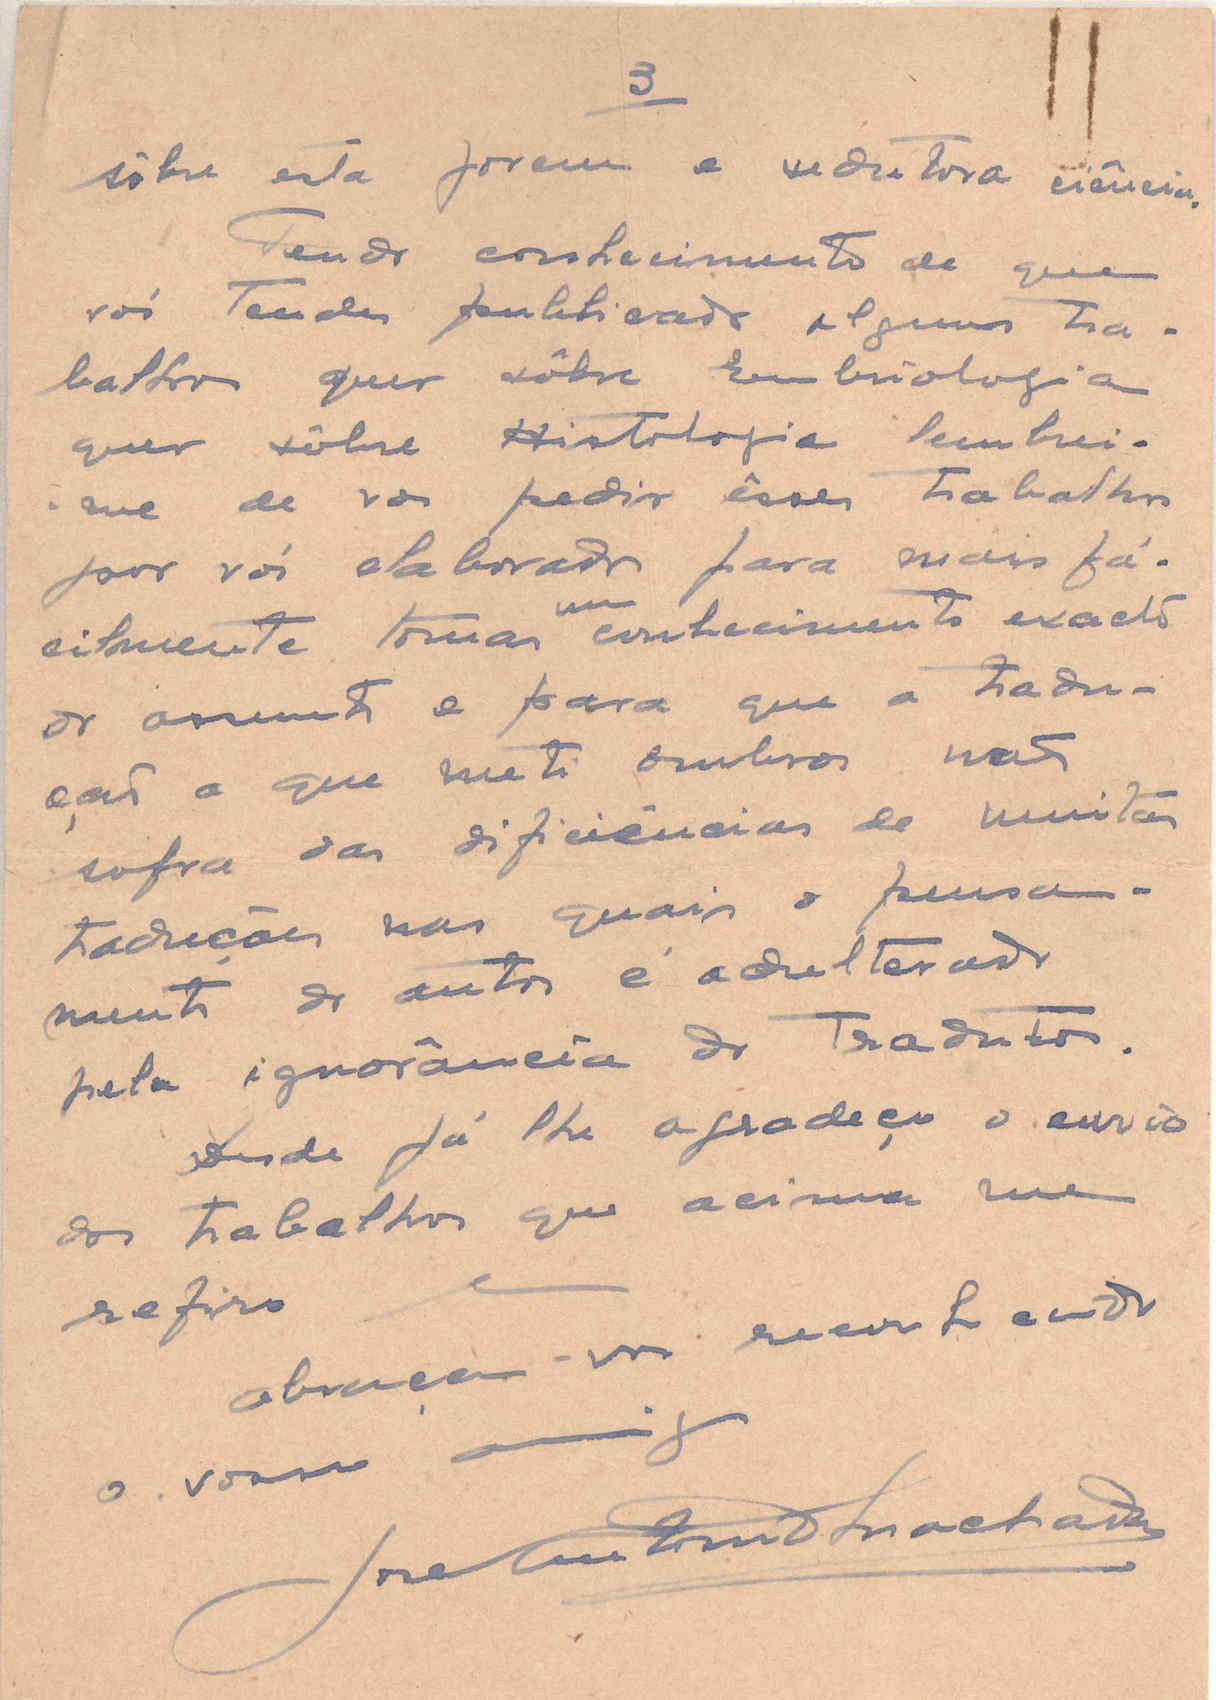 3
sôbre esta jovem e sedutora ciência.
Tendo conhecimento de que
vós tendes publicado alguns tra-
balhos quer sôbre Embriologia
quer sôbre Histologia lembrei-
-me de vos pedir êsses trabalhos
por vós elaborados para mais fá-
cilmente tomar um conhecimento exacto
do assunto e para que a tradu-
ção a que meti ombros não
sofra das dificiências de muitas
traduções nas quais o pensa-
mento do autor é adulterado
pela ignorância do tradutor.
Desde já lhe agradeço o envio
dos trabalhos que acima me
refiro e
abraça-vos reconhecido
o vosso amigo
José Antonio Machado